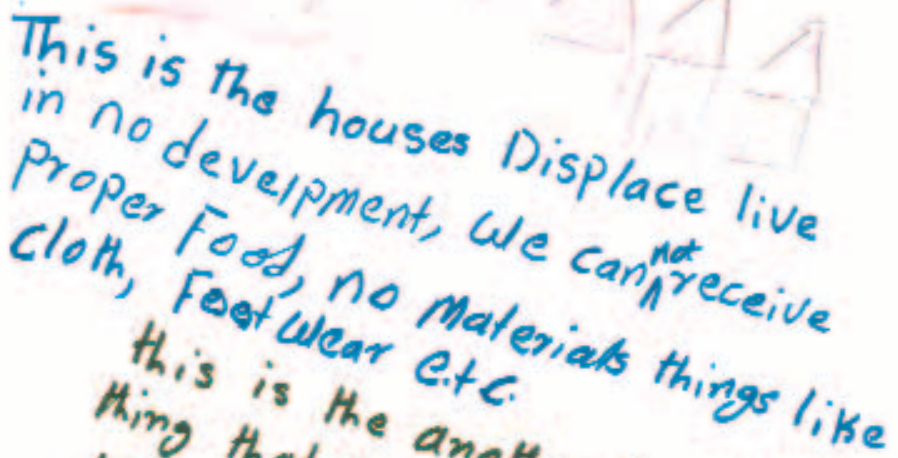 This is the houses Displace live
in no develpment, We can not receive
Proper Food, no Materials things like
Cloth, Footwear e.t.c.
this is the
thing